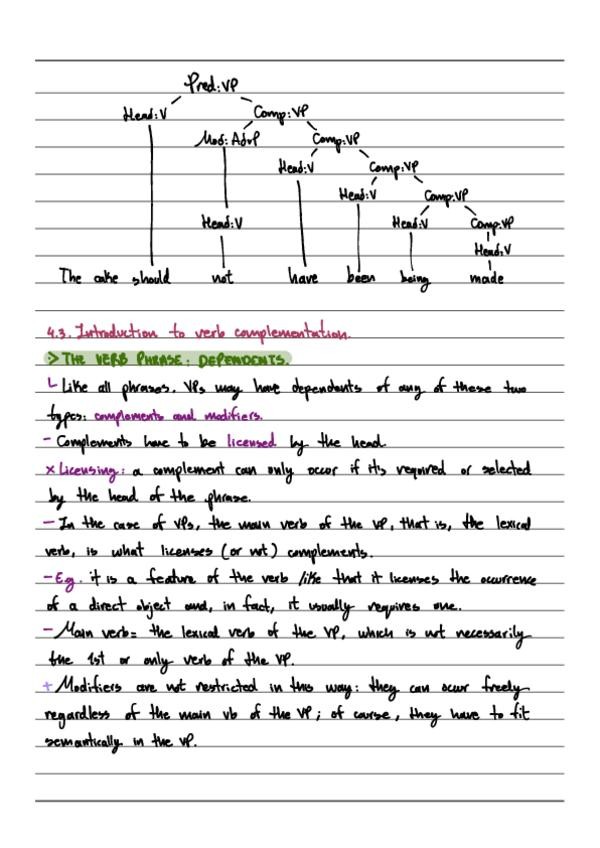 Pred:VP
Head:V Comp:VP
Mod:AdvP Comp:VP
Head:V Comp:VP
Head:V Comp:VP
Head:V Head:V Comp:VP
Head:V
The cake should not have been being made
4.3. Introduction to verb complementation.
> THE VERB PHRASE: DEPENDENTS.
Like all phrases, VPs may have dependents of any of these two
types: complements and modifiers.
- Complements have to be licensed by the head.
x Licensing: a complement can only occur if its required or selected
by the head of the phrase.
- In the case of VPs, the main verb of the VP, that is, the lexical
verb, is what licenses (or not) complements.
- Eg. it is a feature of the verb like that it licenses the occurrence
of a direct object and, in fact, it usually requires one.
- Main verb= the lexical verb of the VP, which is not necessarily
the 1st or only verb of the VP.
+ Modifiers are not restricted in this way: they can ocur freely
regardless of the main vb of the VP; of course, they have to fit
semantically in the VP.